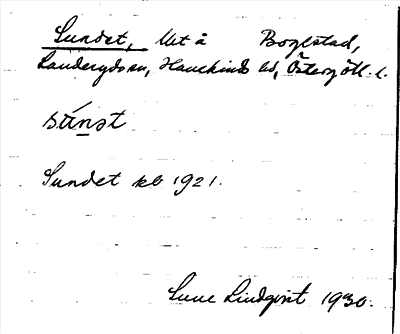 Sundet, Ut å Boglstad,
Landeryds sn, Hanekinds hd, Östergötl. l.
súnst
Sundet kb 1921.
Sune Lindqvist 1930.